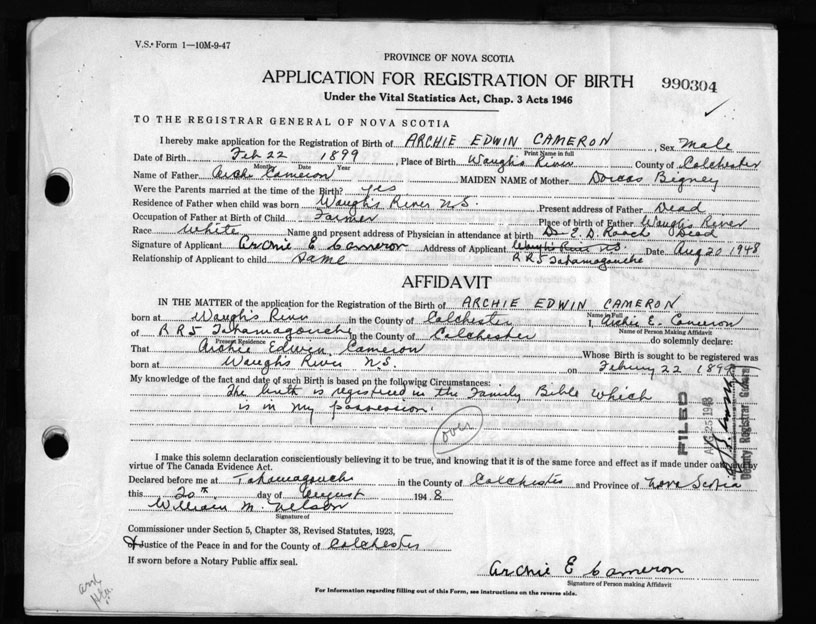 V.S. Form 1—10M-9-47
PROVINCE OF NOVA SCOTIA
APPLICATION FOR REGISTRATION OF BIRTH 990304
Under the Vital Statistics Act, Chap. 3 Acts 1946
TO THE REGISTRAR GENERAL OF NOVA SCOTIA
I hereby make application for the Registration of Birth of ARCHIE EDWIN CAMERON, Sex Male
Print Name in full
Date of Birth Feb 22 1899, Place of Birth Waugh's River County of Colchester
Month Date Year
Name of Father Archie Cameron MAIDEN NAME of Mother Dorcas Bigney
Were the Parents married at the time of the Birth? yes
Residence of Father when child was born Waugh's River N.S. Present address of Father Dead
Occupation of Father at Birth of Child Farmer Place of birth of Father Waugh's River
Race White Name and present address of Physician in attendance at birth Dr. E. D. Roach Dead
Signature of Applicant Archie E Cameron Address of Applicant Waugh's River N.S. Date Aug 20 1948
Relationship of Applicant to child same RR5 Tatamagouche
AFFIDAVIT
IN THE MATTER of the application for the Registration of the Birth of ARCHIE EDWIN CAMERON
Name in Full
born at Waugh's River in the County of Colchester I, Archie E. Cameron
Name of Person Making Affidavit
of RR5 Tatamagouche in the County of Colchester do solemnly declare:
Present Residence
That Archie Edwin Cameron Whose Birth is sought to be registered was
born at Waugh's River N.S. on 22 1899
My knowledge of the fact and date of such Birth is based on the following Circumstances:
The birth is registered in the Family Bible which
is in my possession.
over
FILED
AUG 25 1948
Deputy Registrar General
I make this solemn declaration conscientiously believing it to be true, and knowing that it is of the same force and effect as if made under oath and by
virtue of The Canada Evidence Act.
Declared before me at Tatamagouche in the County of Colchester and Province of Nova Scotia
this 20th day of August 1948
William M. Nelson
Signature of
Commissioner under Section 5, Chapter 38, Revised Statutes, 1923,
Justice of the Peace in and for the County of Colchester
If sworn before a Notary Public affix seal.
Archie E Cameron
Signature of Person making Affidavit
For Information regarding filling out of this Form, see instructions on the reverse side.